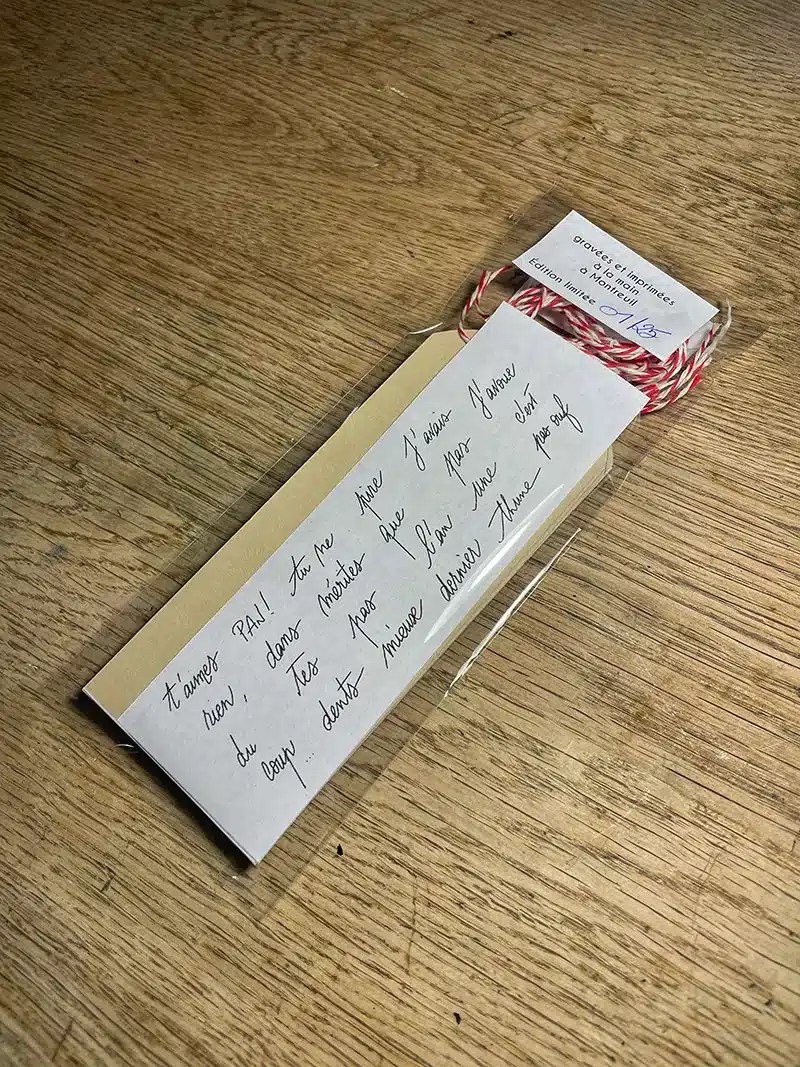 gravées et imprimées
à la main
à Montreuil
Édition limitée 01/25
t'aimes
rien,
du
coup...
PAN!
dans
tes
dents
tu ne
mérites
pas
mieux
pire
que
l'an
dernier
J'avais
pas
une
thune
J'avoue
c'est
pas ouf